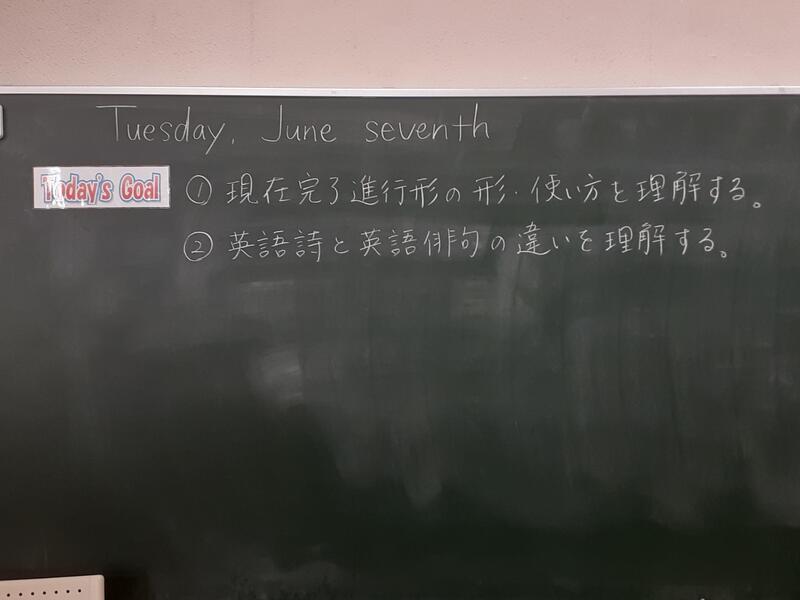 Tuesday, June seventh
Today's Goal ① 現在完了進行形の形・使い方を理解する。
② 英語詩と英語俳句の違いを理解する。